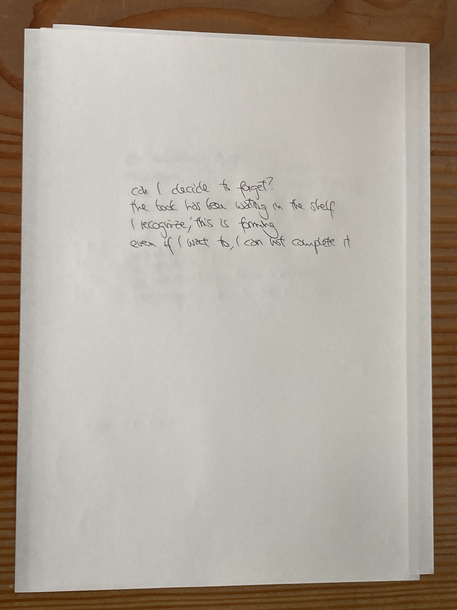 can I decide to forget?
the book has been waiting in the shelf
I recognize, this is forming
even if I want to, I can not complete it